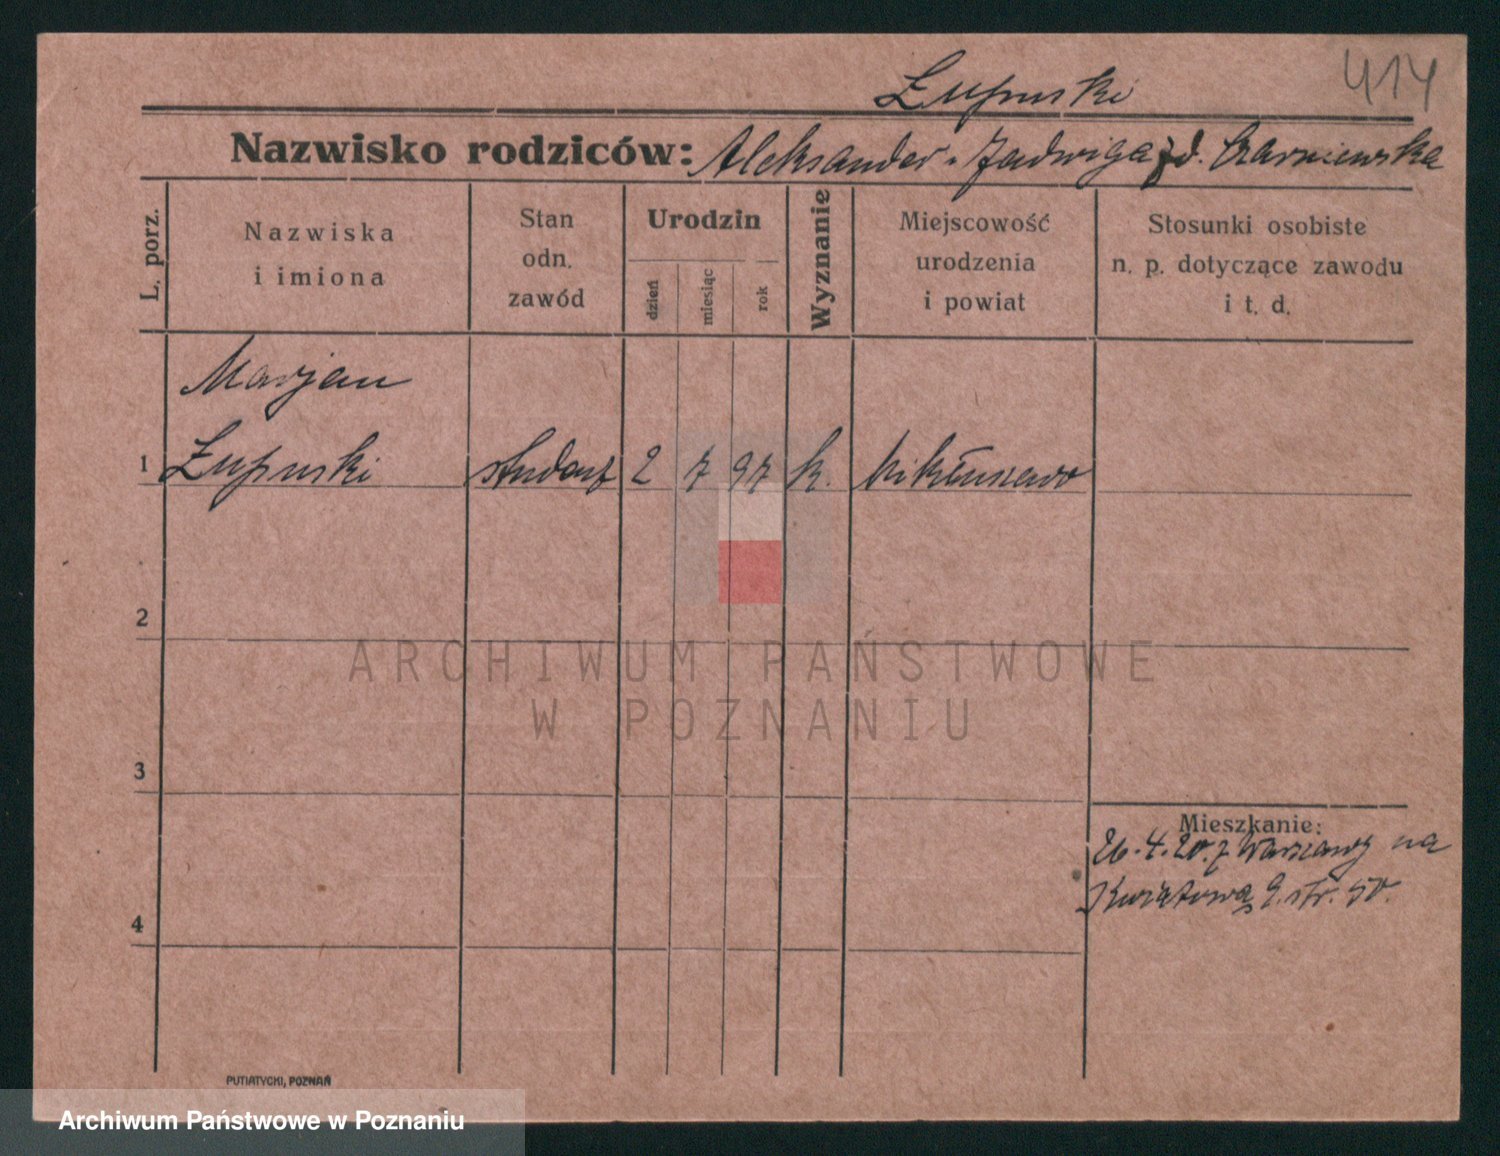 414
Łupuski
Nazwisko rodziców: Aleksander i Jadwiga zd. Czarniewska
L. porz.
Nazwiska
i imiona
Stan
odn.
zawód
Urodzin
dzień
miesiąc
rok
Wyznanie
Miejscowość
urodzenia
i powiat
Stosunki osobiste
n. p. dotyczące zawodu
i t. d.
Marjan
1 Łupuski 2 7 97 k.
2
ARCHIWUM PAŃSTWOWE
W POZNANIU
3
Mieszkanie:
26.4.20. z Warszawy na
Kwiatową 9. str. 50.
4
PUTIATYCKI, POZNAŃ
Archiwum Państwowe w Poznaniu